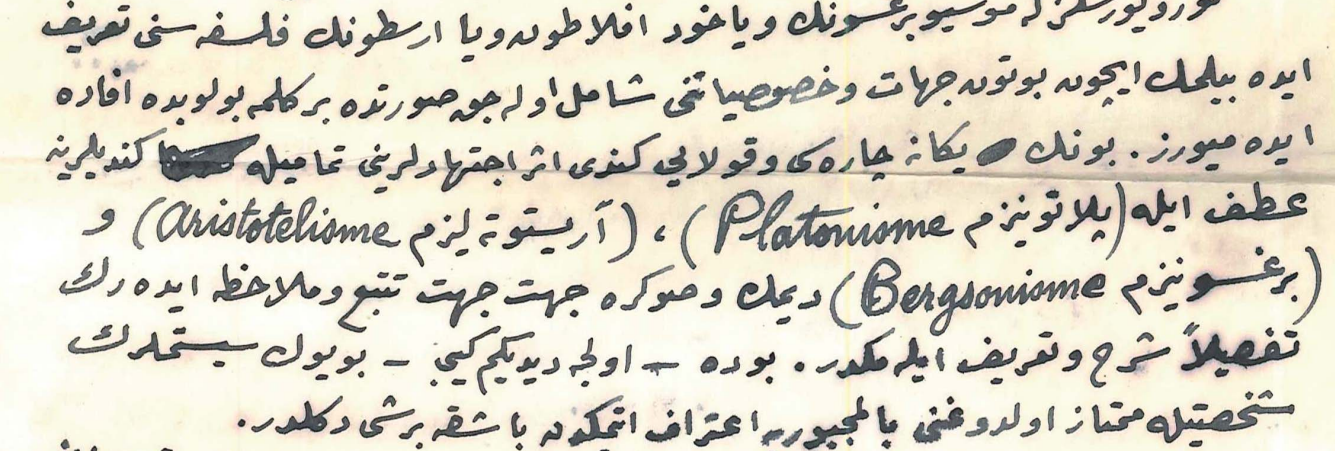 گورويورسكزكه موسيو برغسونك وياخود افلاطونك ويا ارسطونك فلسفه سنى تعريف
ايده بيلمك ايچون بوتون جهات وخصوصياتنى شامل اوله جق صورتده بر كلمه بولوبده افاده
ايده ميورز. بونك يكانه چاره سى وقولايى كندى اثر اجتهادلرينى تماميله كنديلرينه
عطف ايله (پلاتونيزم Platonisme)، (آريستوته ليزم Aristotelisme) و
(برغسونيزم Bergsonisme) ديمك وصوكره جهت جهت تتبع وملاحظه ايده رك
تفصيلاً شرح وتعريف ايله مكدر. بوده – اولجه ديديكم كبى – بويوك سيستملرك
شخصيتيله ممتاز اولدوغنى بالمجبوريه اعتراف ايتمكدن باشقه برشى دكلدر.